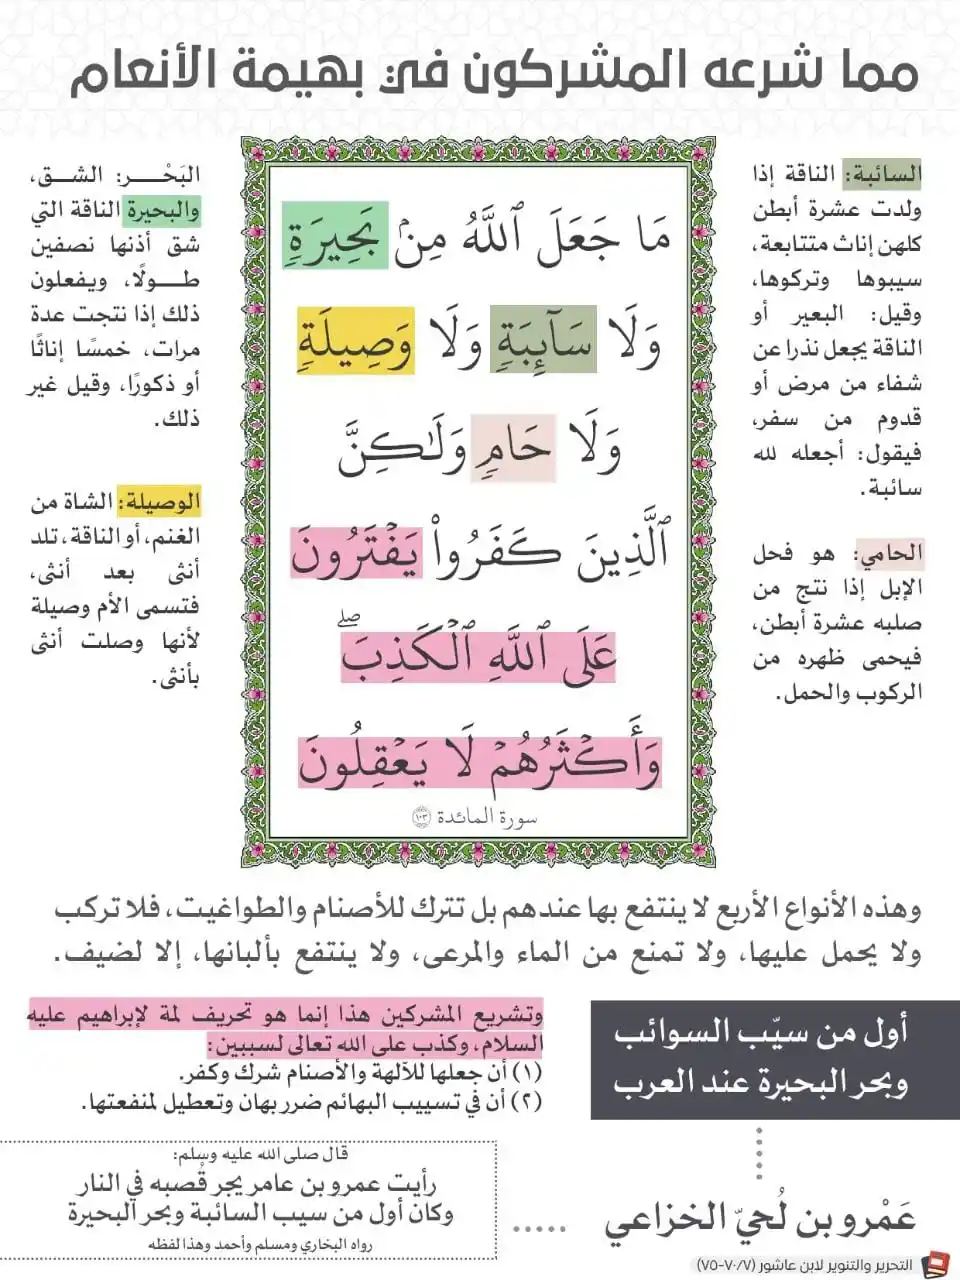 مما شرعه المشركون في بهيمة الأنعام
السائبة: الناقة إذا
ولدت عشرة أبطن
كلهن إناث متتابعة،
سيبوها وتركوها،
وقيل: البعير أو
الناقة يجعل نذرا عن
شفاء من مرض أو
قدوم من سفر،
فيقول: أجعله لله
سائبة.
الحامي: هو فحل
الإبل إذا نتج من
صلبه عشرة أبطن،
فيحمى ظهره من
الركوب والحمل.
مَا جَعَلَ ٱللَّهُ مِنۢ بَحِيرَةٖ
وَلَا سَآئِبَةٖ وَلَا وَصِيلَةٖ
وَلَا حَامٖ وَلَٰكِنَّ
ٱلَّذِينَ كَفَرُواْ يَفۡتَرُونَ
عَلَى ٱللَّهِ ٱلۡكَذِبَۖ
وَأَكۡثَرُهُمۡ لَا يَعۡقِلُونَ
سورة المائدة ١٠٣
البَحْـــر: الشـــق،
والبحيرة الناقة التي
شق أذنها نصفين
طـــولًا، ويفعلون
ذلك إذا نتجت عدة
مرات، خمسًا إناثًا
أو ذكورًا، وقيل غير
ذلك.
الوصيلة: الشاة من
الغنم، أو الناقة، تلد
أنثى بعد أنثى،
فتسمى الأم وصيلة
لأنها وصلت أنثى
بأنثى.
وهذه الأنواع الأربع لا ينتفع بها عندهم بل تترك للأصنام والطواغيت، فلا تركب
ولا يحمل عليها، ولا تمنع من الماء والمرعى، ولا ينتفع بألبانها، إلا لضيف.
أول من سيّب السوائب
وبحر البحيرة عند العرب
عَمْرو بن لُحيّ الخزاعي
وتشريع المشركين هذا إنما هو تحريف لمة لإبراهيم عليه
السلام، وكذب على الله تعالى لسببين:
(١) أن جعلها للآلهة والأصنام شرك وكفر.
(٢) أن في تسييب البهائم ضرر بهان وتعطيل لمنفعتها.
قال صلى الله عليه وسلم:
رأيت عمرو بن عامر يجر قُصبه في النار
وكان أول من سيب السائبة وبحر البحيرة
رواه البخاري ومسلم وأحمد وهذا لفظه
التحرير والتنوير لابن عاشور (٧/ ٧٠-٧٥)